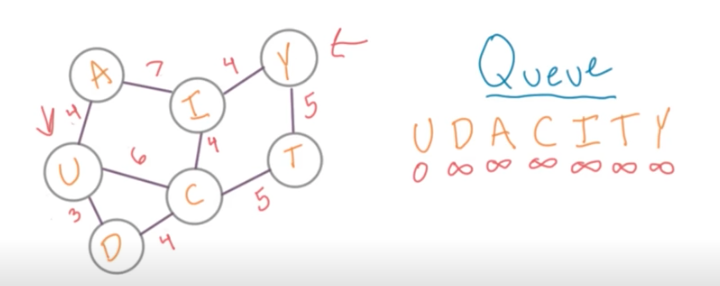 A 7 I 4 Y
4 4 5
U 6 C 5 T
3 D 4
Queue
U D A C I T Y
0 ∞ ∞ ∞ ∞ ∞ ∞